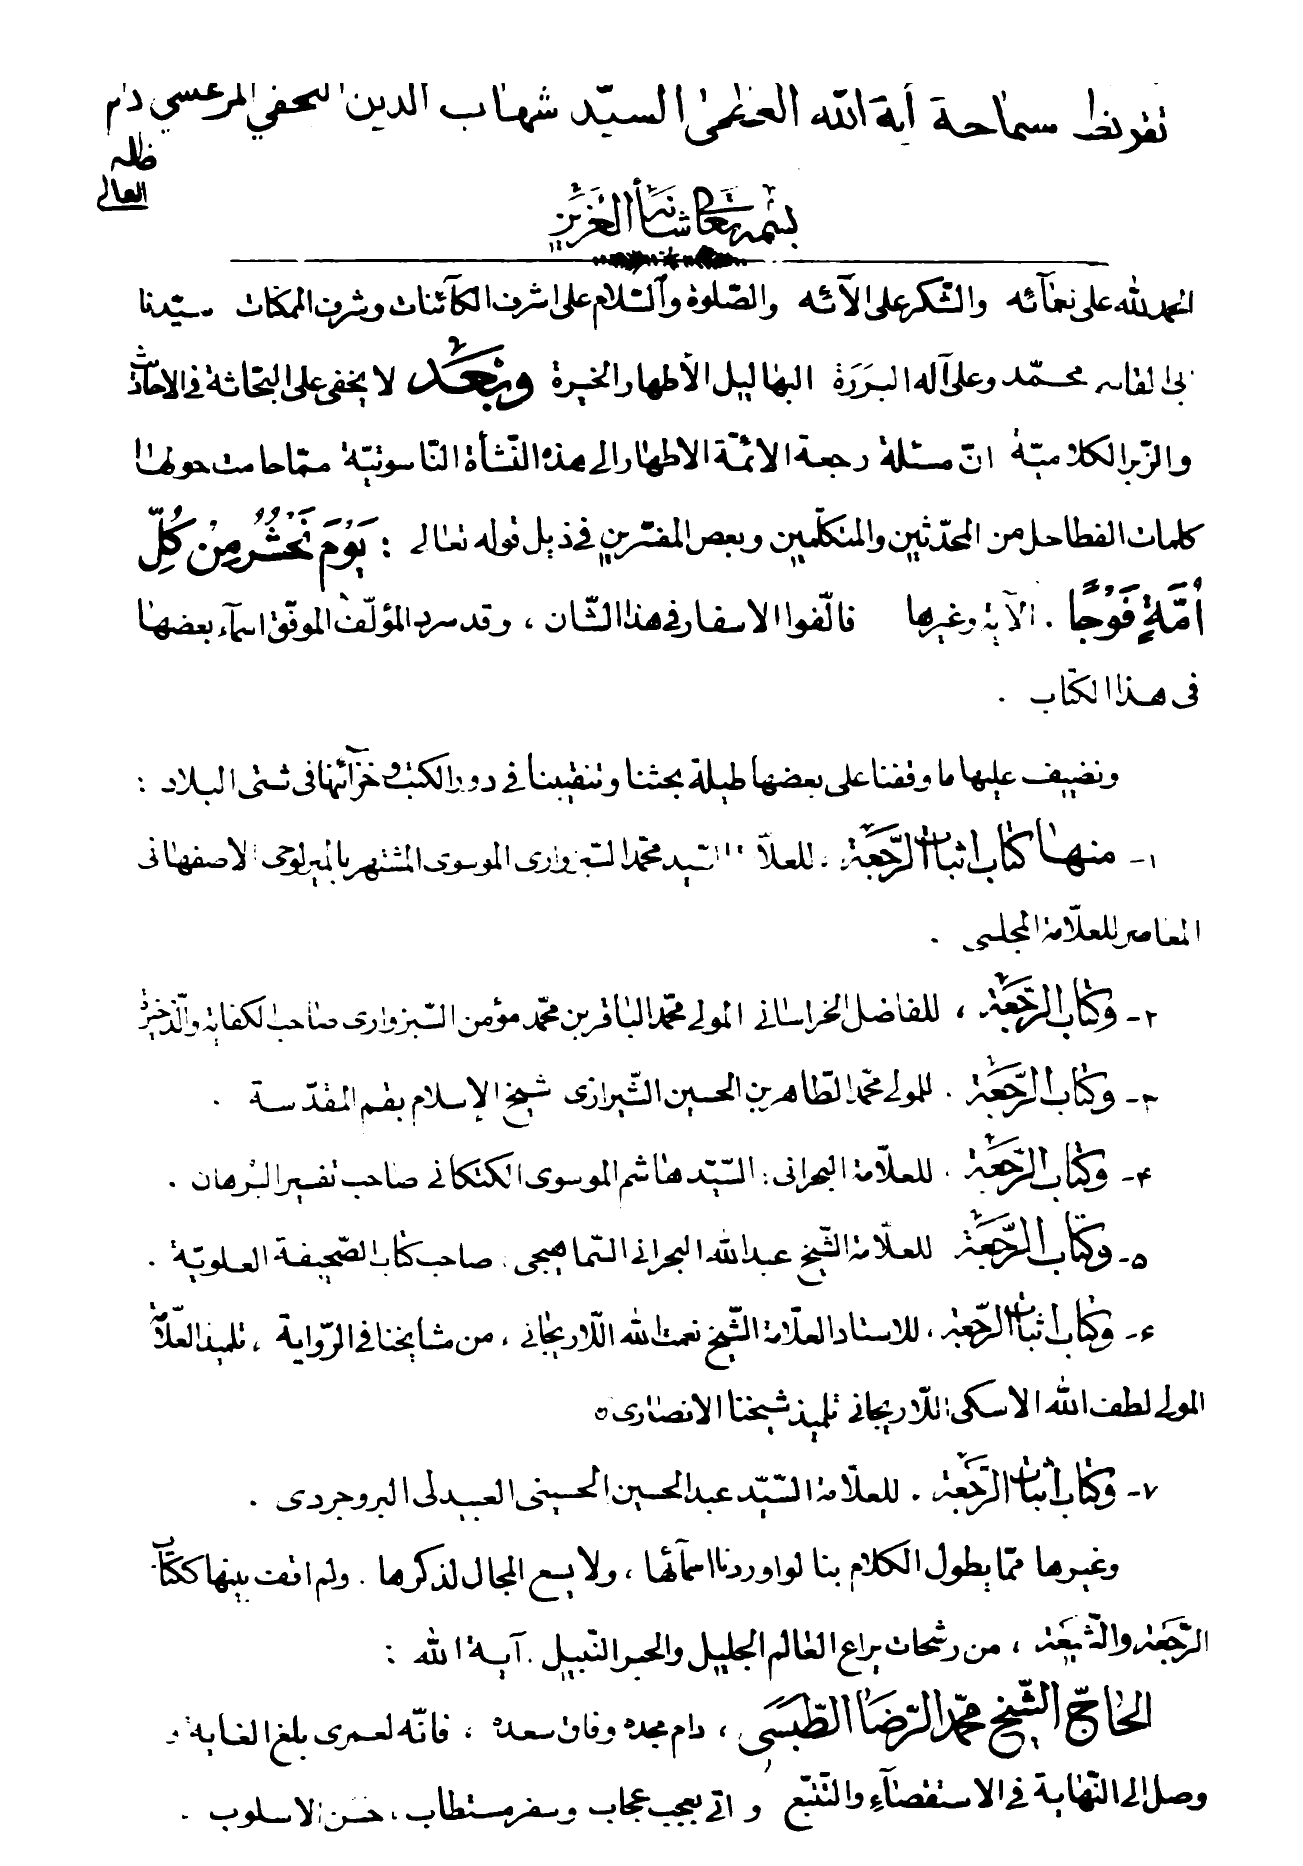 تقريظ سماحة آية الله العظمى السيّد شهاب الدين النجفي المرعشي دام
ظله
العالي
بسمه تعالى شانه العزيز
الحمد لله على نعمآئه والشّكر على الآئه والصّلوة والسّلام على اشرف الكآئنات وشرف الممكنات سيّدنا
ابى القاسم محمّد وعلى آله البررة البهاليل الأطهار الخيرة وبَعْد لا يخفى على البحّاثة فى الاحاديث
والزّبر الكلاميّة انّ مسئلة رجعة الائمّة الاطهار الى هذه النّشأة النّاسوتيّة ممّا حامت حولها
كلمات الفطاحل من المحدّثين والمتكلّمين وبعض المفسّرين فى ذيل قوله تعالى : يَوْمَ نَحْشُرُ مِنْ كُلِّ
أُمَّةٍ فَوْجًا . الآية وغيرها فالّفوا الاسفار فى هذا الشّان ، وقد سرد المؤلّف الموفّق اسمآء بعضها
فى هذا الكتاب .
ونضيف عليها ما وقفنا على بعضها طيلة بحثنا وتنقيبنا فى دور الكتب وخزآئنها فى شتى البلاد :
١- منها كتاب اثبات الرّجعة ، للعلاّمة السّيد محمّد السّبزوارى الموسوى المشتهر بالميرلوحى الاصفهانى
المعاصر للعلّامة المجلسى .
٢- وكتاب الرّجعة ، للفاضل الخراسانى المولى محمّد الباقر بن محمّد مؤمن السّبزوارى صاحب الكفاية والذّخيرة
٣- وكتاب الرّجعة . للمولى محمّد الطّاهر بن الحسين الشّيرازى شيخ الإسلام بقم المقدّسة .
۴- وكتاب الرّجعة . للعلّامة البحرانى : السّيّد هاشم الموسوى الكتكانى صاحب تفسير البرهان .
۵- وكتاب الرّجعة للعلّامة الشّيخ عبد الله البحرانى السّماهيجى . صاحب كتاب الصّحيفة العلويّة .
۶- وكتاب اثبات الرّجعة ، للاستاد العلّامة الشّيخ نعمت الله اللّاريجانى ، من مشايخنا فى الرّواية ، تلميذ العلّامة
المولى لطف الله الاسكى اللّاريجانى تلميذ شيخنا الانصارى ه
٧- وكتاب اثبات الرّجعة . للعلّامة السّيّد عبد الحسين الحسينى العبيدلى البروجردى .
وغيرها ممّا يطول الكلام بنا لو اوردنا اسمآئها ، ولا يسع المجال لذكرها . ولم اقف بينها ككتاب
الرّجعة والشّيعة ، من رشحات يراع العالم الجليل والحبر النّبيل . آية الله :
الحاجّ الشّيخ محمّد الرّضا الطّبسى ، دام مجده وفاق سعده ، فانّه لعمرى بلغ الغاية و
وصل الى النّهاية فى الاستقصآء والتّتبّع و اتى بعجب عجاب وسفر مستطاب ، حسن الاسلوب .